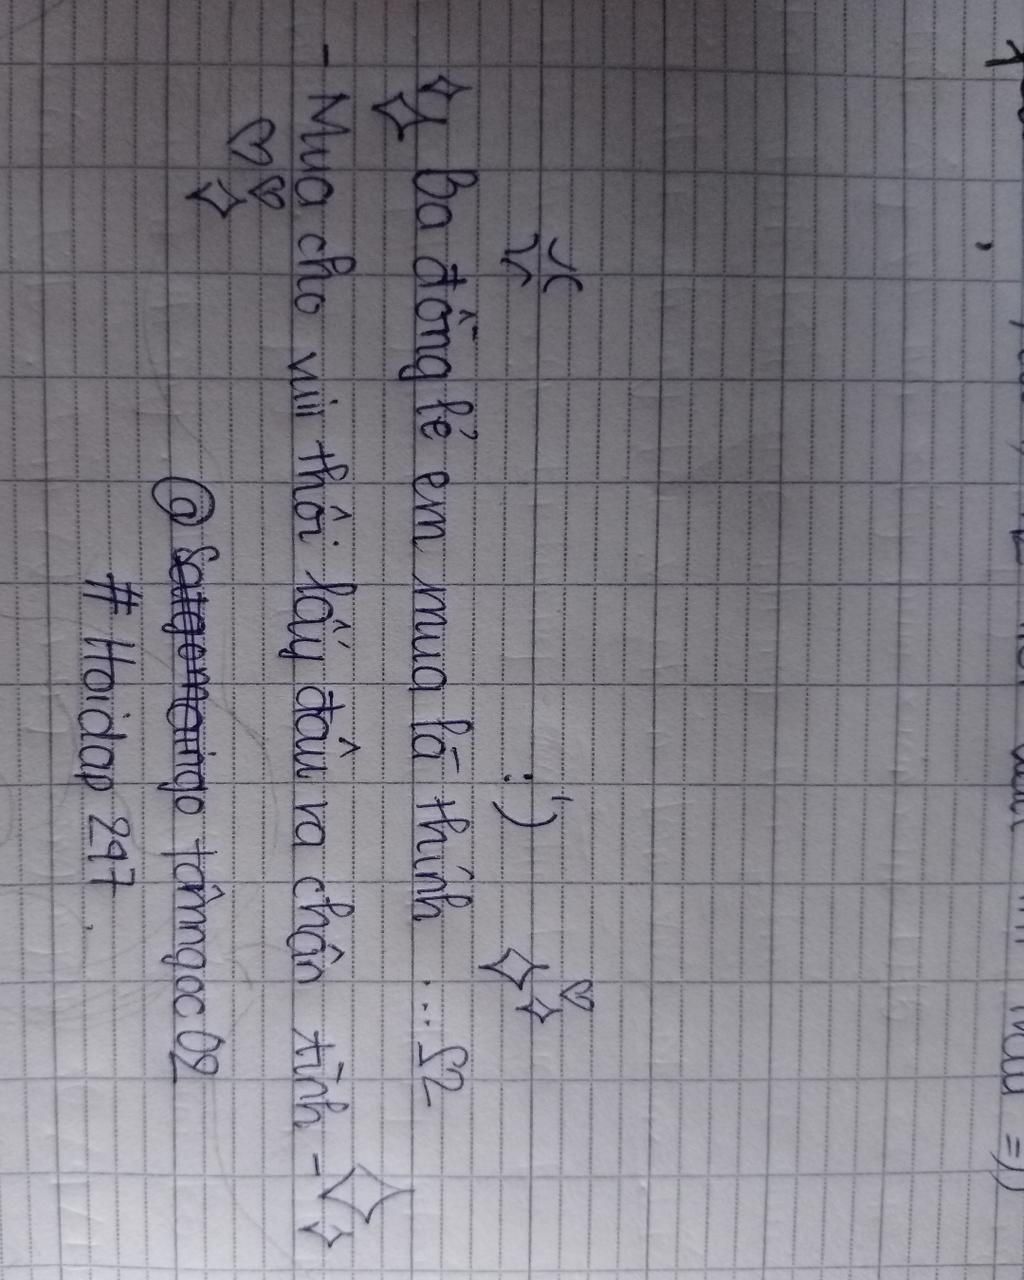 :')
Ba đồng lẻ em mua lã thính ... S2
- Mua cho vui thôi lấy đâu ra chân tình -
@ tâmngoc02
# Hoidap 247